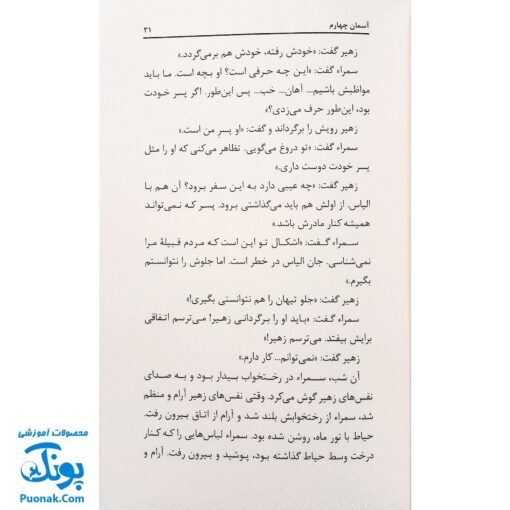 آسمان چهارم
۳۱
زهیر گفت: «خودش رفته، خودش هم برمی‌گردد.»
سمراء گفت: «این چه حرفی است؟ او بچه است. ما باید
مواظبش باشیم... آهان... خب... پس این‌طور. اگر پسر خودت
بود، این‌طور حرف می‌زدی؟»
زهیر رویش را برگرداند و گفت: «او پسرِ من است.»
سمراء گفت: «تو دروغ می‌گویی. تظاهر می‌کنی که او را مثل
پسر خودت دوست داری.»
زهیر گفت: «چه عیبی دارد به این سفر برود؟ آن هم با
الیاس. از اولش هم باید می‌گذاشتی برود. پسر که نمی‌تواند
همیشه کنار مادرش باشد.»
سمراء گفت: «اشکال تو این است که مردم قبیلهٔ مرا
نمی‌شناسی. جان الیاس در خطر است. اما جلوش را نتوانستم
بگیرم.»
زهیر گفت: «جلو تیهان را هم نتوانستی بگیری!»
سمراء گفت: «باید او را برگردانی زهیر! می‌ترسم اتفاقی
برایش بیفتد. می‌ترسم زهیر!»
زهیر گفت: «نمی‌توانم... کار دارم.»
آن شب، سمراء در رختخواب بیدار بود و به صدای
نفس‌های زهیر گوش می‌کرد. وقتی نفس‌های زهیر آرام و منظم
شد، سمراء از رختخوابش بلند شد و آرام از اتاق بیرون رفت.
حیاط با نور ماه، روشن شده بود. سمراء لباس‌هایی را که کنار
درخت وسط حیاط گذاشته بود، پوشید و بیرون رفت. آرام و
محصولات آموزشی
پونک
Puonak.Com